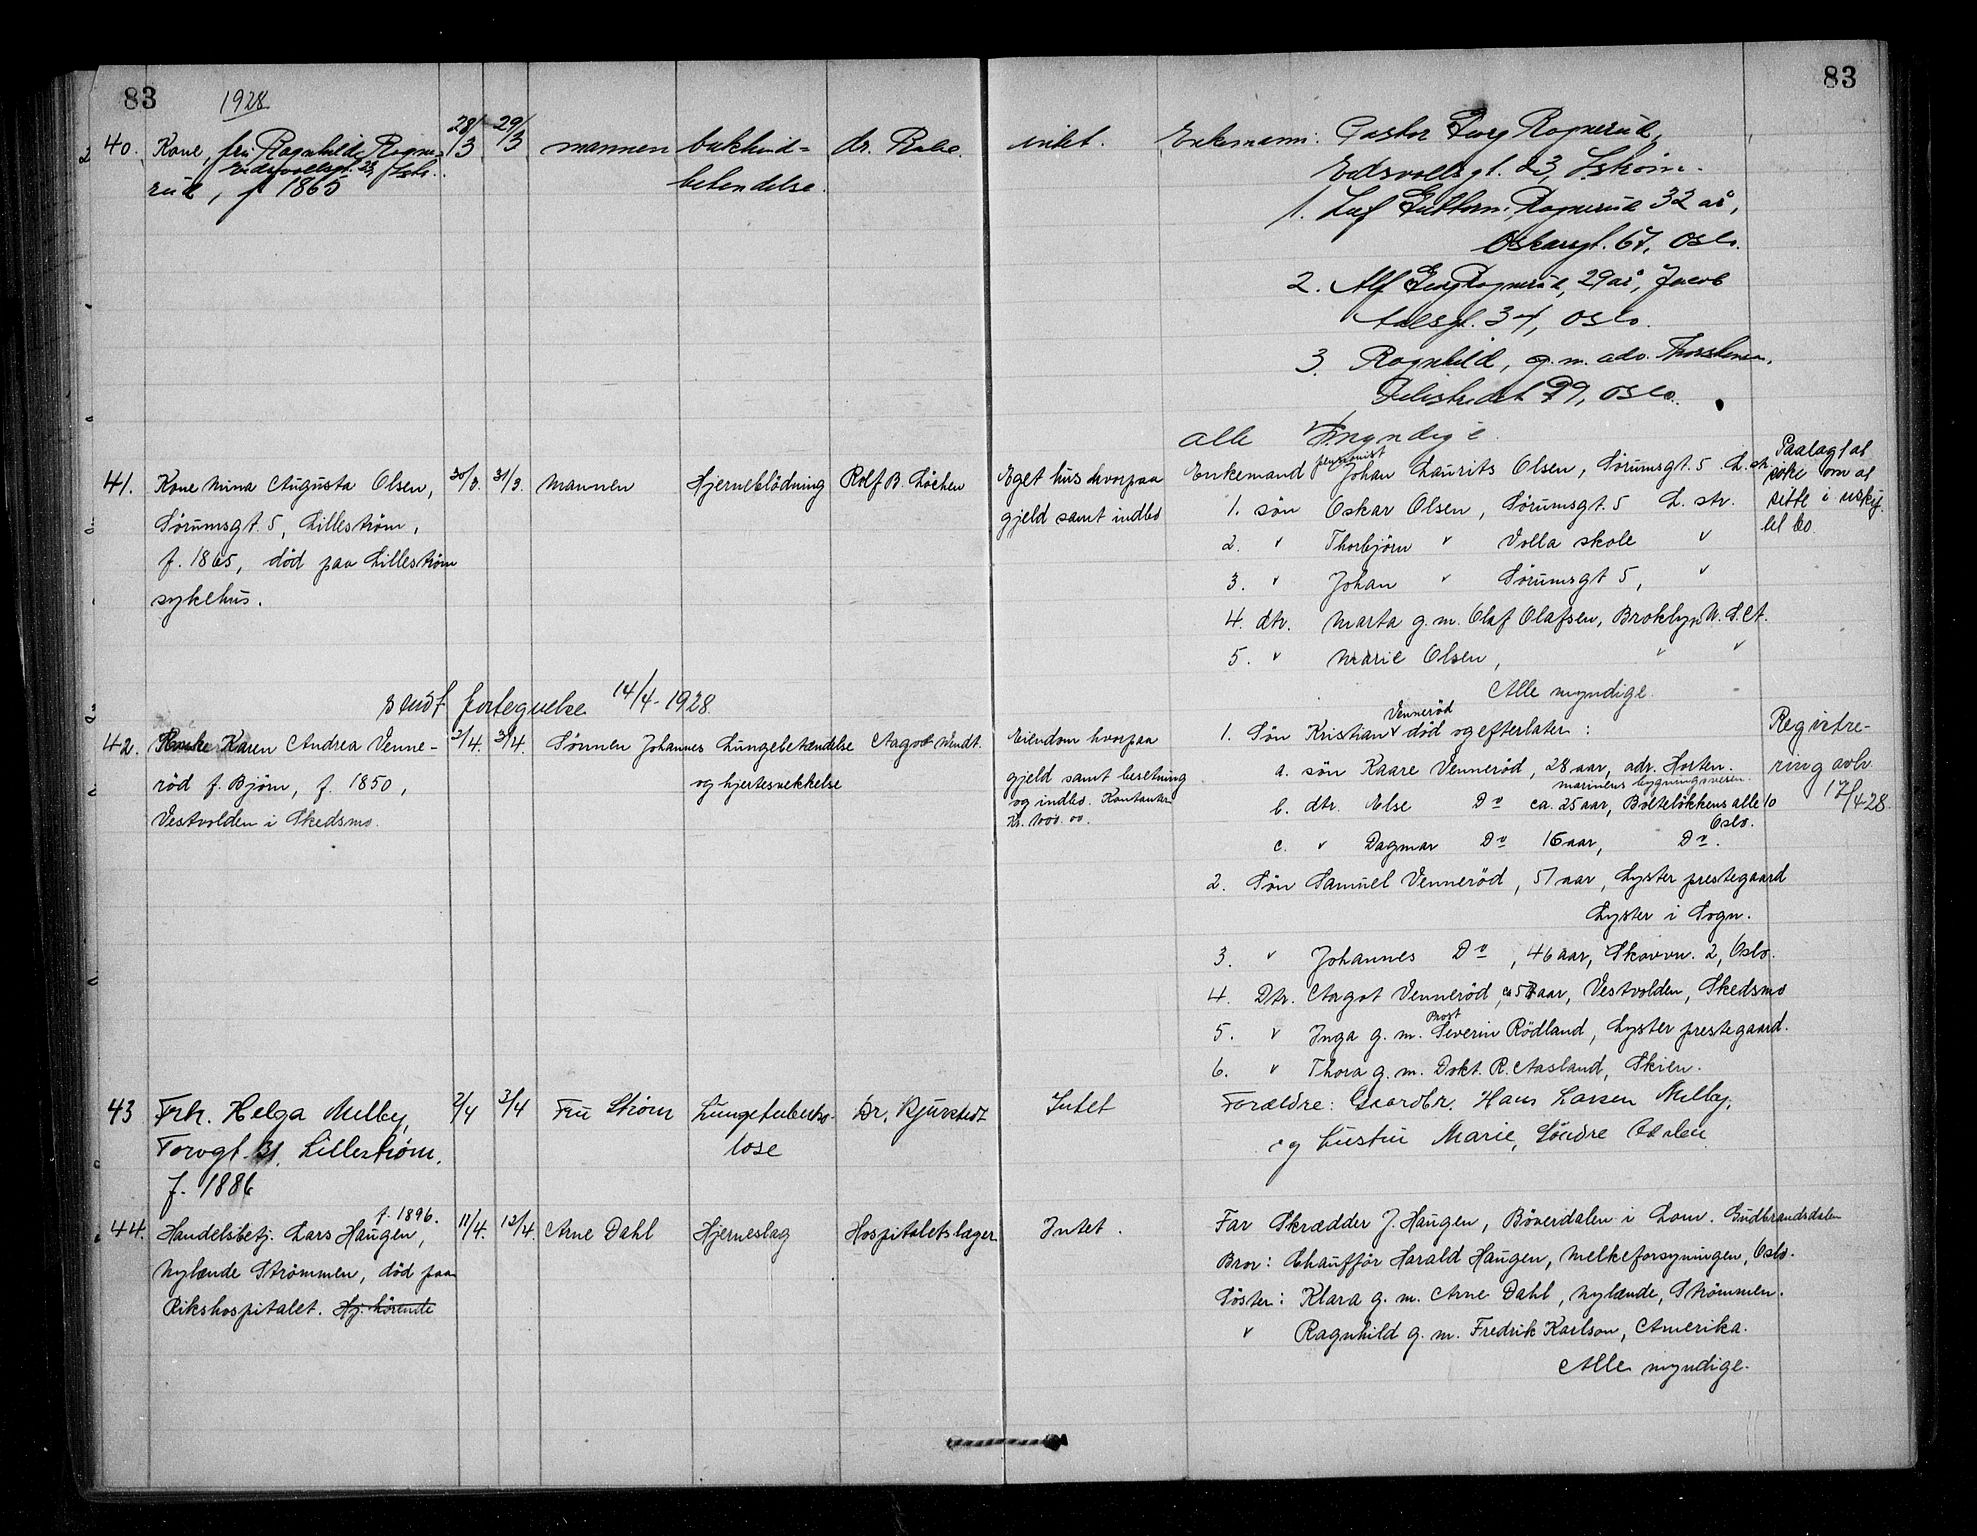 83
1928
83
40. Kone, fru Ragnhild Rogne-
Eidsvollsgt. 23, Lstr.
rud, f. 1865
28/3 29/3 mannen bukhind-
betendelse.
dr.
intet.
Enkemann: Pastor Georg Rognerud,
Eidsvollsgt. 23, Lstrøm.
1. Leif Guttorm Rognerud 32 år,
Oscarsgt. 67, Oslo.
2. Alf Georg Rognerud, 29 år, Jacob
Aalsgt. 34, Oslo.
3. Ragnhild, g.m. adv. Thorstensen,
Pilestredet 99, Oslo.
alle myndige.
41. Kone Mina Augusta Olsen,
Sørumsgt. 5, Lillestrøm,
f. 1865, død paa Lillestrøm
sykehus.
30/3. 31/3. Mannen Hjerneblödning Rolf B. Löchen
Eget hus hvorpaa
gjeld samt indbo
Enkemand pensionist Johan Laurits Olsen, Sørumsgt. 5 L.str.
1. søn Oskar Olsen, Sørumsgt. 5 L. str.
2. " Thorbjörn " Volla skole "
3. " Johan " Sørumsgt 5, "
4. dtr. Marta g.m. Olaf Olafsen, Broklyn U.S.A.
5. " Marie Olsen, " "
Alle myndige.
Paalagt at
søke om at
sitte i uskif-
tet bo.
Endst fortegnelse 14/4-1928.
42. Karen Andrea Venne-
röd f. Bjørn, f. 1850,
Vestvolden i Skedsmo.
2/4. 3/4. Sønnen Johannes Lungebetændelse
og hjertesvekkelse
Aagot Wendt.
Eiendom hvorpaa
gjeld samt besetning
og indbo. Kontanter
Kr. 1000.00.
1. Søn Kristian Venneröd død og efterlater:
a. søn Kaare Venneröd, 28 aar, adr. Horten.
marinens bygningsvesen.
b. dtr. Else Do ca. 25 aar, Bolteløkkens alle 10
Oslo.
c. " Dagmar Do 16 aar, Do.
2. Søn Samuel Venneröd, 51 aar, Lyster prestegaard
Lyster i Sogn.
3. " Johannes Do, 46 aar, Skovvn. 2, Oslo.
4. Dtr. Aagot Venneröd, aar, Vestvolden, Skedsmo
5. " Inga g.m. Prost Severin Rödland, Lyster prestegaard.
6. " Thora g.m. Dokt. R. Aasland, Skien.
Registre-
ring avh.
17/4 28.
43 Frk. Helga Melby,
Torvgt. 31, Lillestrøm.
f. 1886
2/4 3/4 Fru Strøm Lungetuberku-
lose
Dr. Bjurstedt
Intet
Forældre: Gaardbr. Hans Larsen Melby,
og hustru Marie, Søndre
44. Handelsbetj. Lars Haugen, f. 1896.
Nylænde Strømmen, død paa
Rikshospitalet. Hj. hörende
11/4. 12/4. Arne Dahl Hjerneslag Hospitalets læger
Intet.
Far Skrædder J. Haugen, Böverdalen i Lom. Gudbrandsdalen
Bror: Chaufför Harald Haugen, Melkeforsyningen, Oslo.
Söster: Klara g.m. Arne Dahl, Nylænde, Strømmen.
" Ragnhild g.m. Fredrik Karlson, Amerika.
Alle myndige.